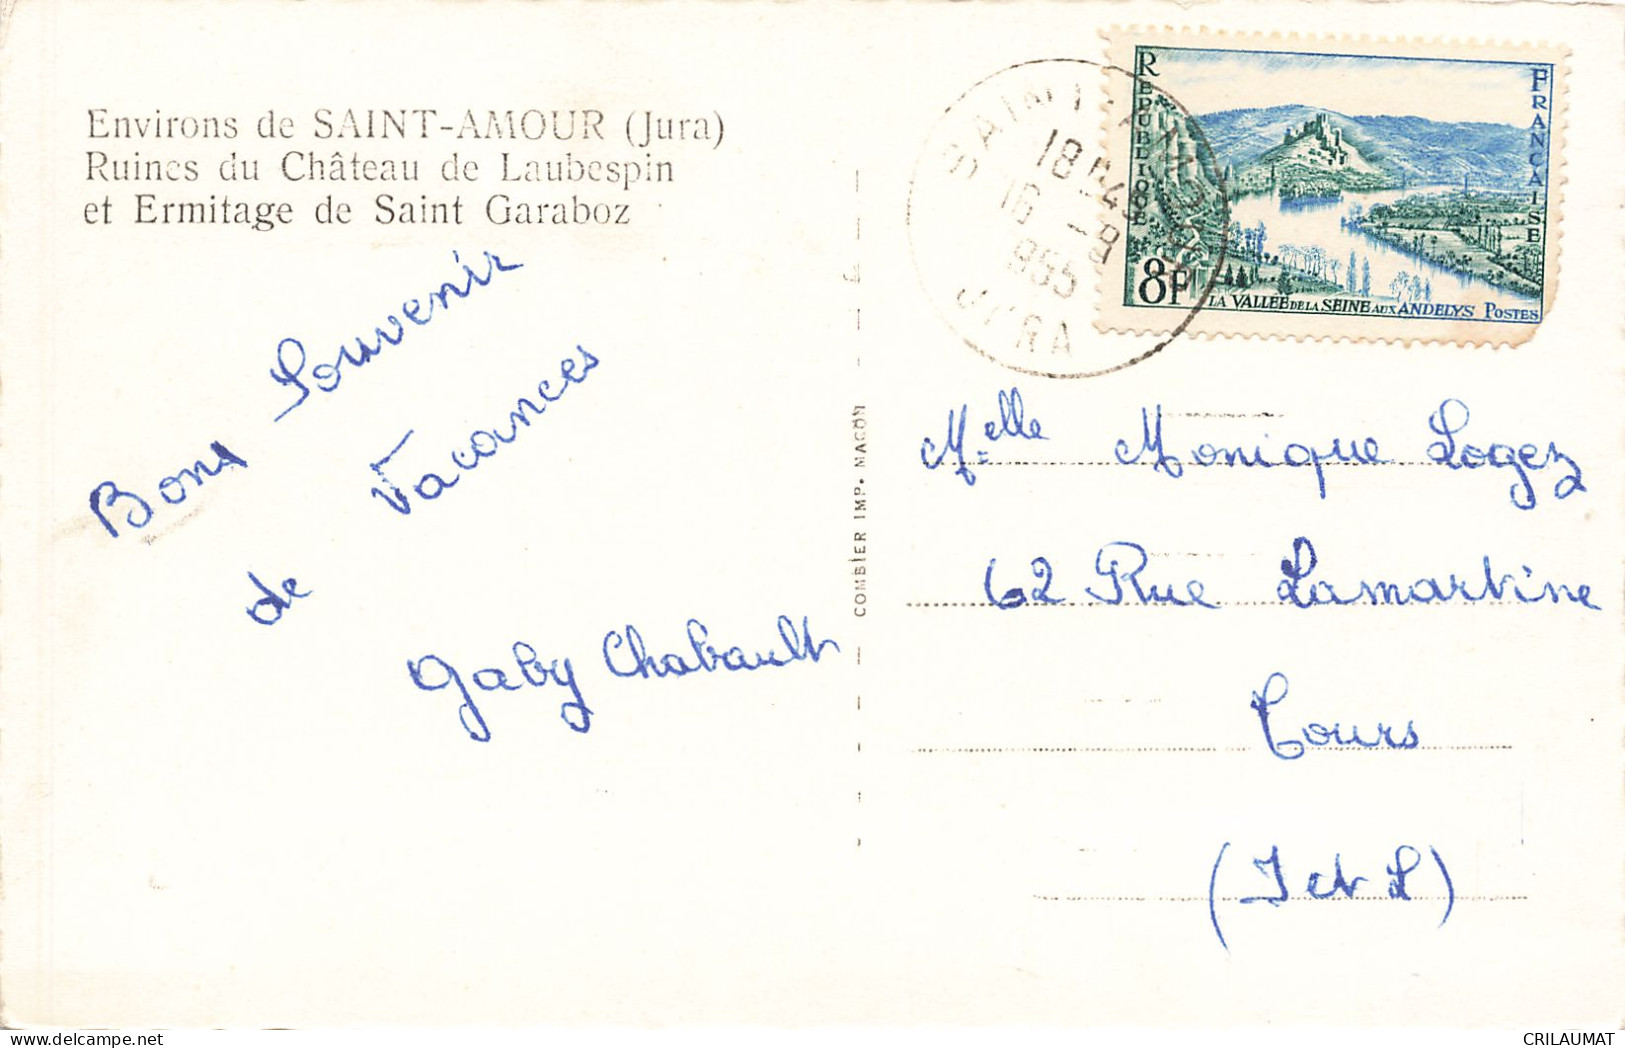 Environs de SAINT-AMOUR (Jura)
Ruines du Château de Laubespin
et Ermitage de Saint Garaboz
Bons Souvenir
de Vacances
Gaby Chabault
COMBIER IMP. MACON
SAINT-AMOUR
18H45
16 -8
1955
JURA
REPUBLIQUE FRANCAISE
8F
LA VALLÉE DE LA SEINE AUX ANDELYS POSTES
Melle Monique Logez
62 Rue Lamartine
Tours
(I et L)
CRILAUMAT